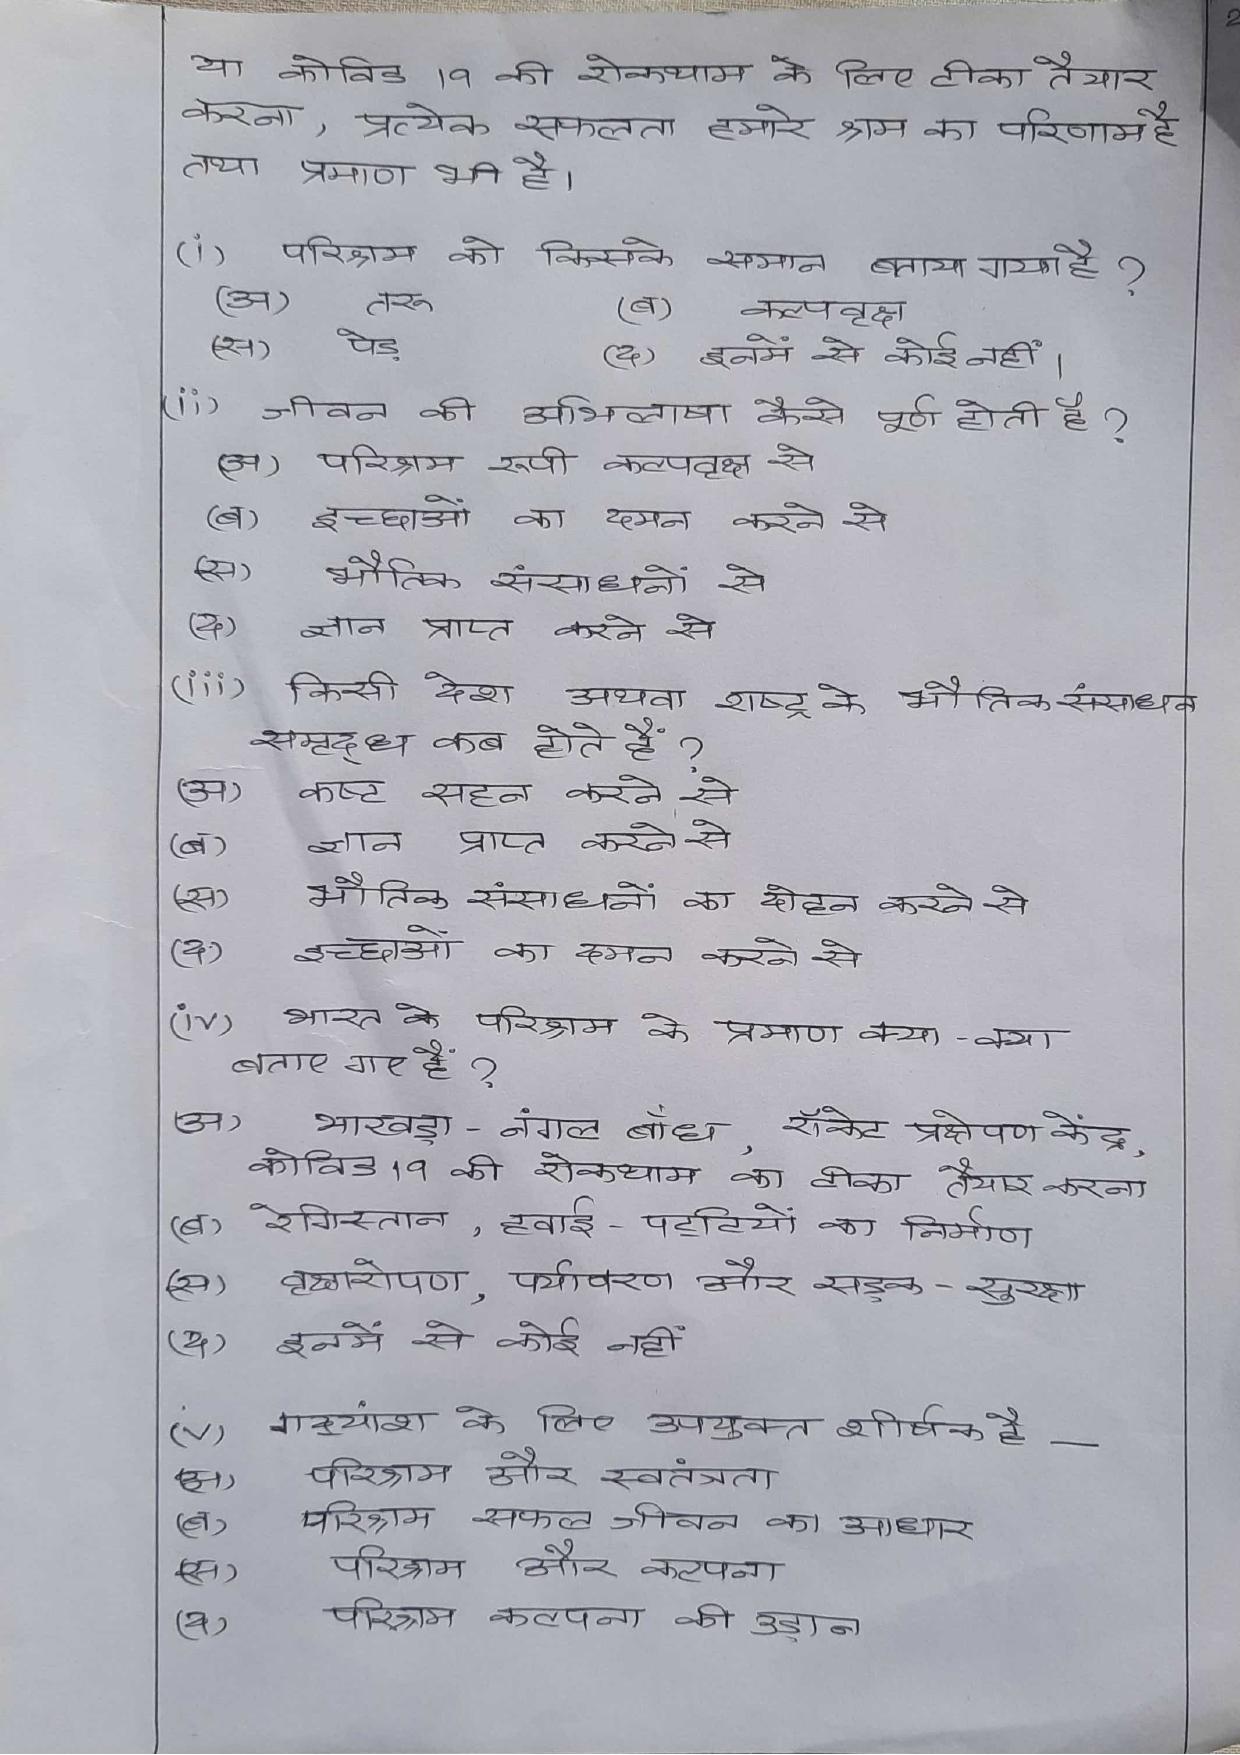 2
या कोविड 19 की रोकथाम के लिए टीका तैयार
करना, प्रत्येक सफलता हमारे श्रम का परिणाम है
तथा प्रमाण भी है।
(i) परिश्रम को किसके समान बताया गया है ?
(अ) तरू (ब) कल्पवृक्ष
(स) पेड़ (द) इनमें से कोई नहीं।
(ii) जीवन की अभिलाषा कैसे पूर्ण होती है ?
(अ) परिश्रम रूपी कल्पवृक्ष से
(ब) इच्छाओं का दमन करने से
(स) भौतिक संसाधनों से
(द) ज्ञान प्राप्त करने से
(iii) किसी देश अथवा राष्ट्र के भौतिक संसाधन
समृद्ध कब होते हैं ?
(अ) कष्ट सहन करने से
(ब) ज्ञान प्राप्त करने से
(स) भौतिक संसाधनों का दोहन करने से
(द) इच्छाओं का दमन करने से
(iv) भारत के परिश्रम के प्रमाण क्या - क्या
बताए गए हैं ?
(अ) भाखड़ा - नंगल बाँध, रॉकेट प्रक्षेपण केंद्र,
कोविड 19 की रोकथाम का टीका तैयार करना
(ब) रेगिस्तान, हवाई - पट्टियों का निर्माण
(स) वृक्षारोपण, पर्यावरण और सड़क - सुरक्षा
(द) इनमें से कोई नहीं
(v) गद्यांश के लिए उपयुक्त शीर्षक है —
(अ) परिश्रम और स्वतंत्रता
(ब) परिश्रम सफल जीवन का आधार
(स) परिश्रम और कल्पना
(द) परिश्रम कल्पना की उड़ान